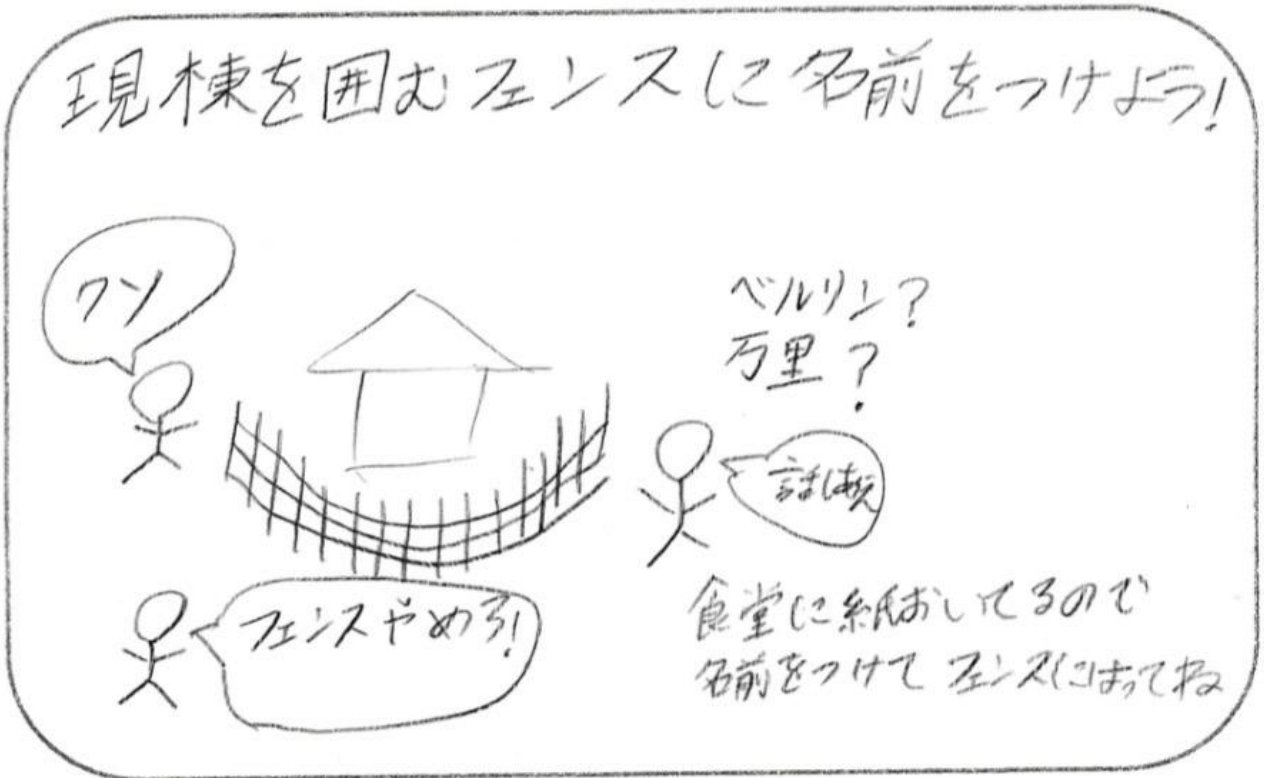 現棟を囲むフェンスに名前をつけよう!
クソ
ベルリン?
万里?
フェンスやめろ!
食堂に紙おいてるので
名前をつけて フェンスにはってね